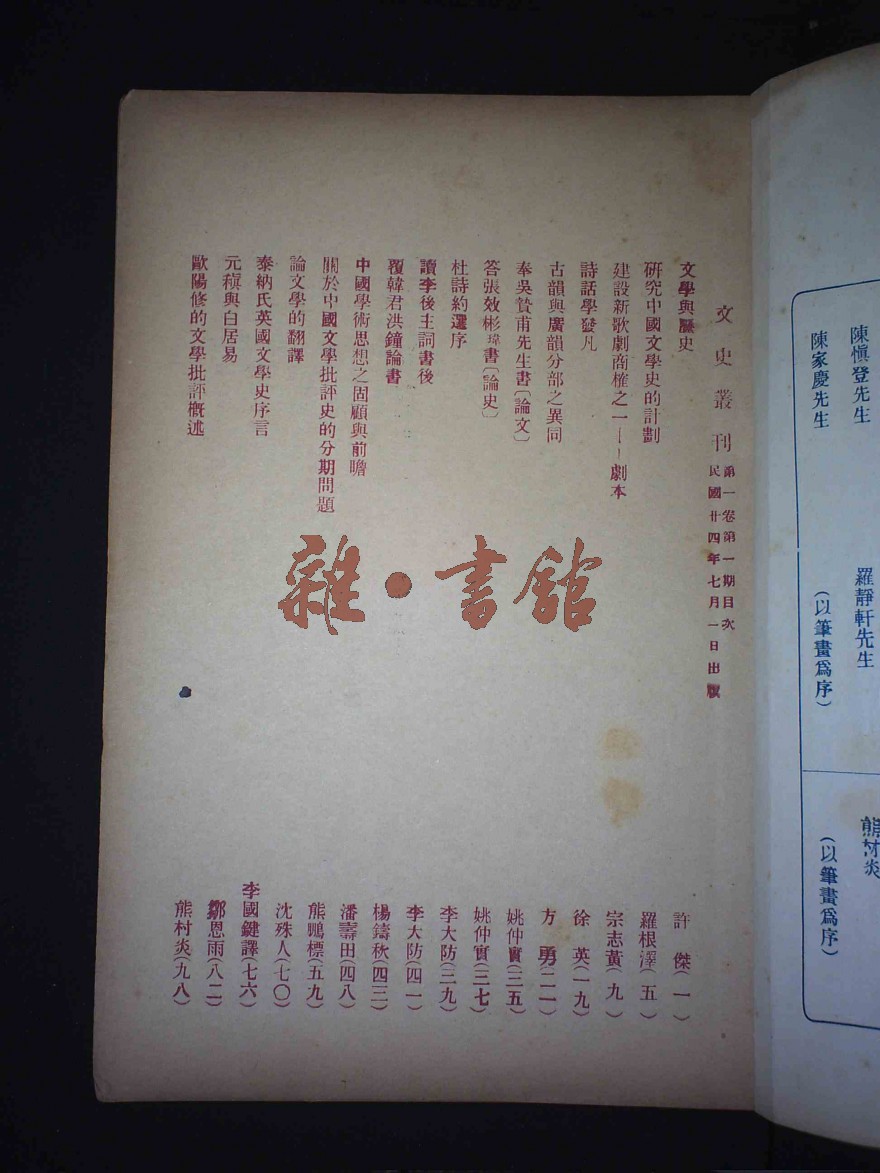 陳愼登先生
羅靜軒先生
熊村炎
陳家慶先生
(以筆畫爲序)
(以筆畫爲序)
文史叢刊
第一卷第一期目次
民國廿四年七月一日出版
文學與歷史 許傑(一)
研究中國文學史的計劃 羅根澤(五)
建設新歌劇商榷之一——劇本 宗志黃(九)
詩話學發凡 徐英(一九)
古韻與廣韻分部之異同 方勇(二一)
奉吳贄甫先生書〔論文〕 姚仲實(三五)
答張效彬瑋書〔論史〕 姚仲實(三七)
杜詩約選序 李大防(三九)
讀李後主詞書後 李大防(四一)
覆韓君洪鐘論書 楊鑄秋(四三)
中國學術思想之固顧與前瞻 潘壽田(四八)
關於中國文學批評史的分期問題 熊鵬標(五九)
論文學的翻譯 沈殊人(七〇)
泰納氏英國文學史序言 李國鍵譯(七六)
元稹與白居易 鄒恩雨(八二)
歐陽修的文學批評概述 熊村炎(九八)
雜·書館